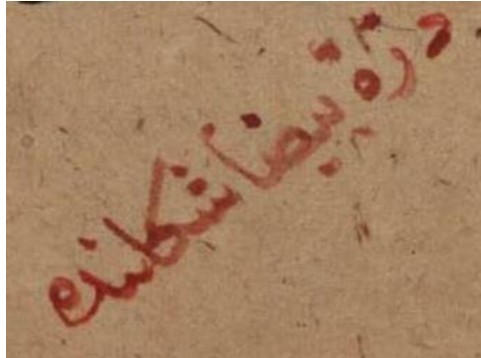 درّة بيضا شكلنده